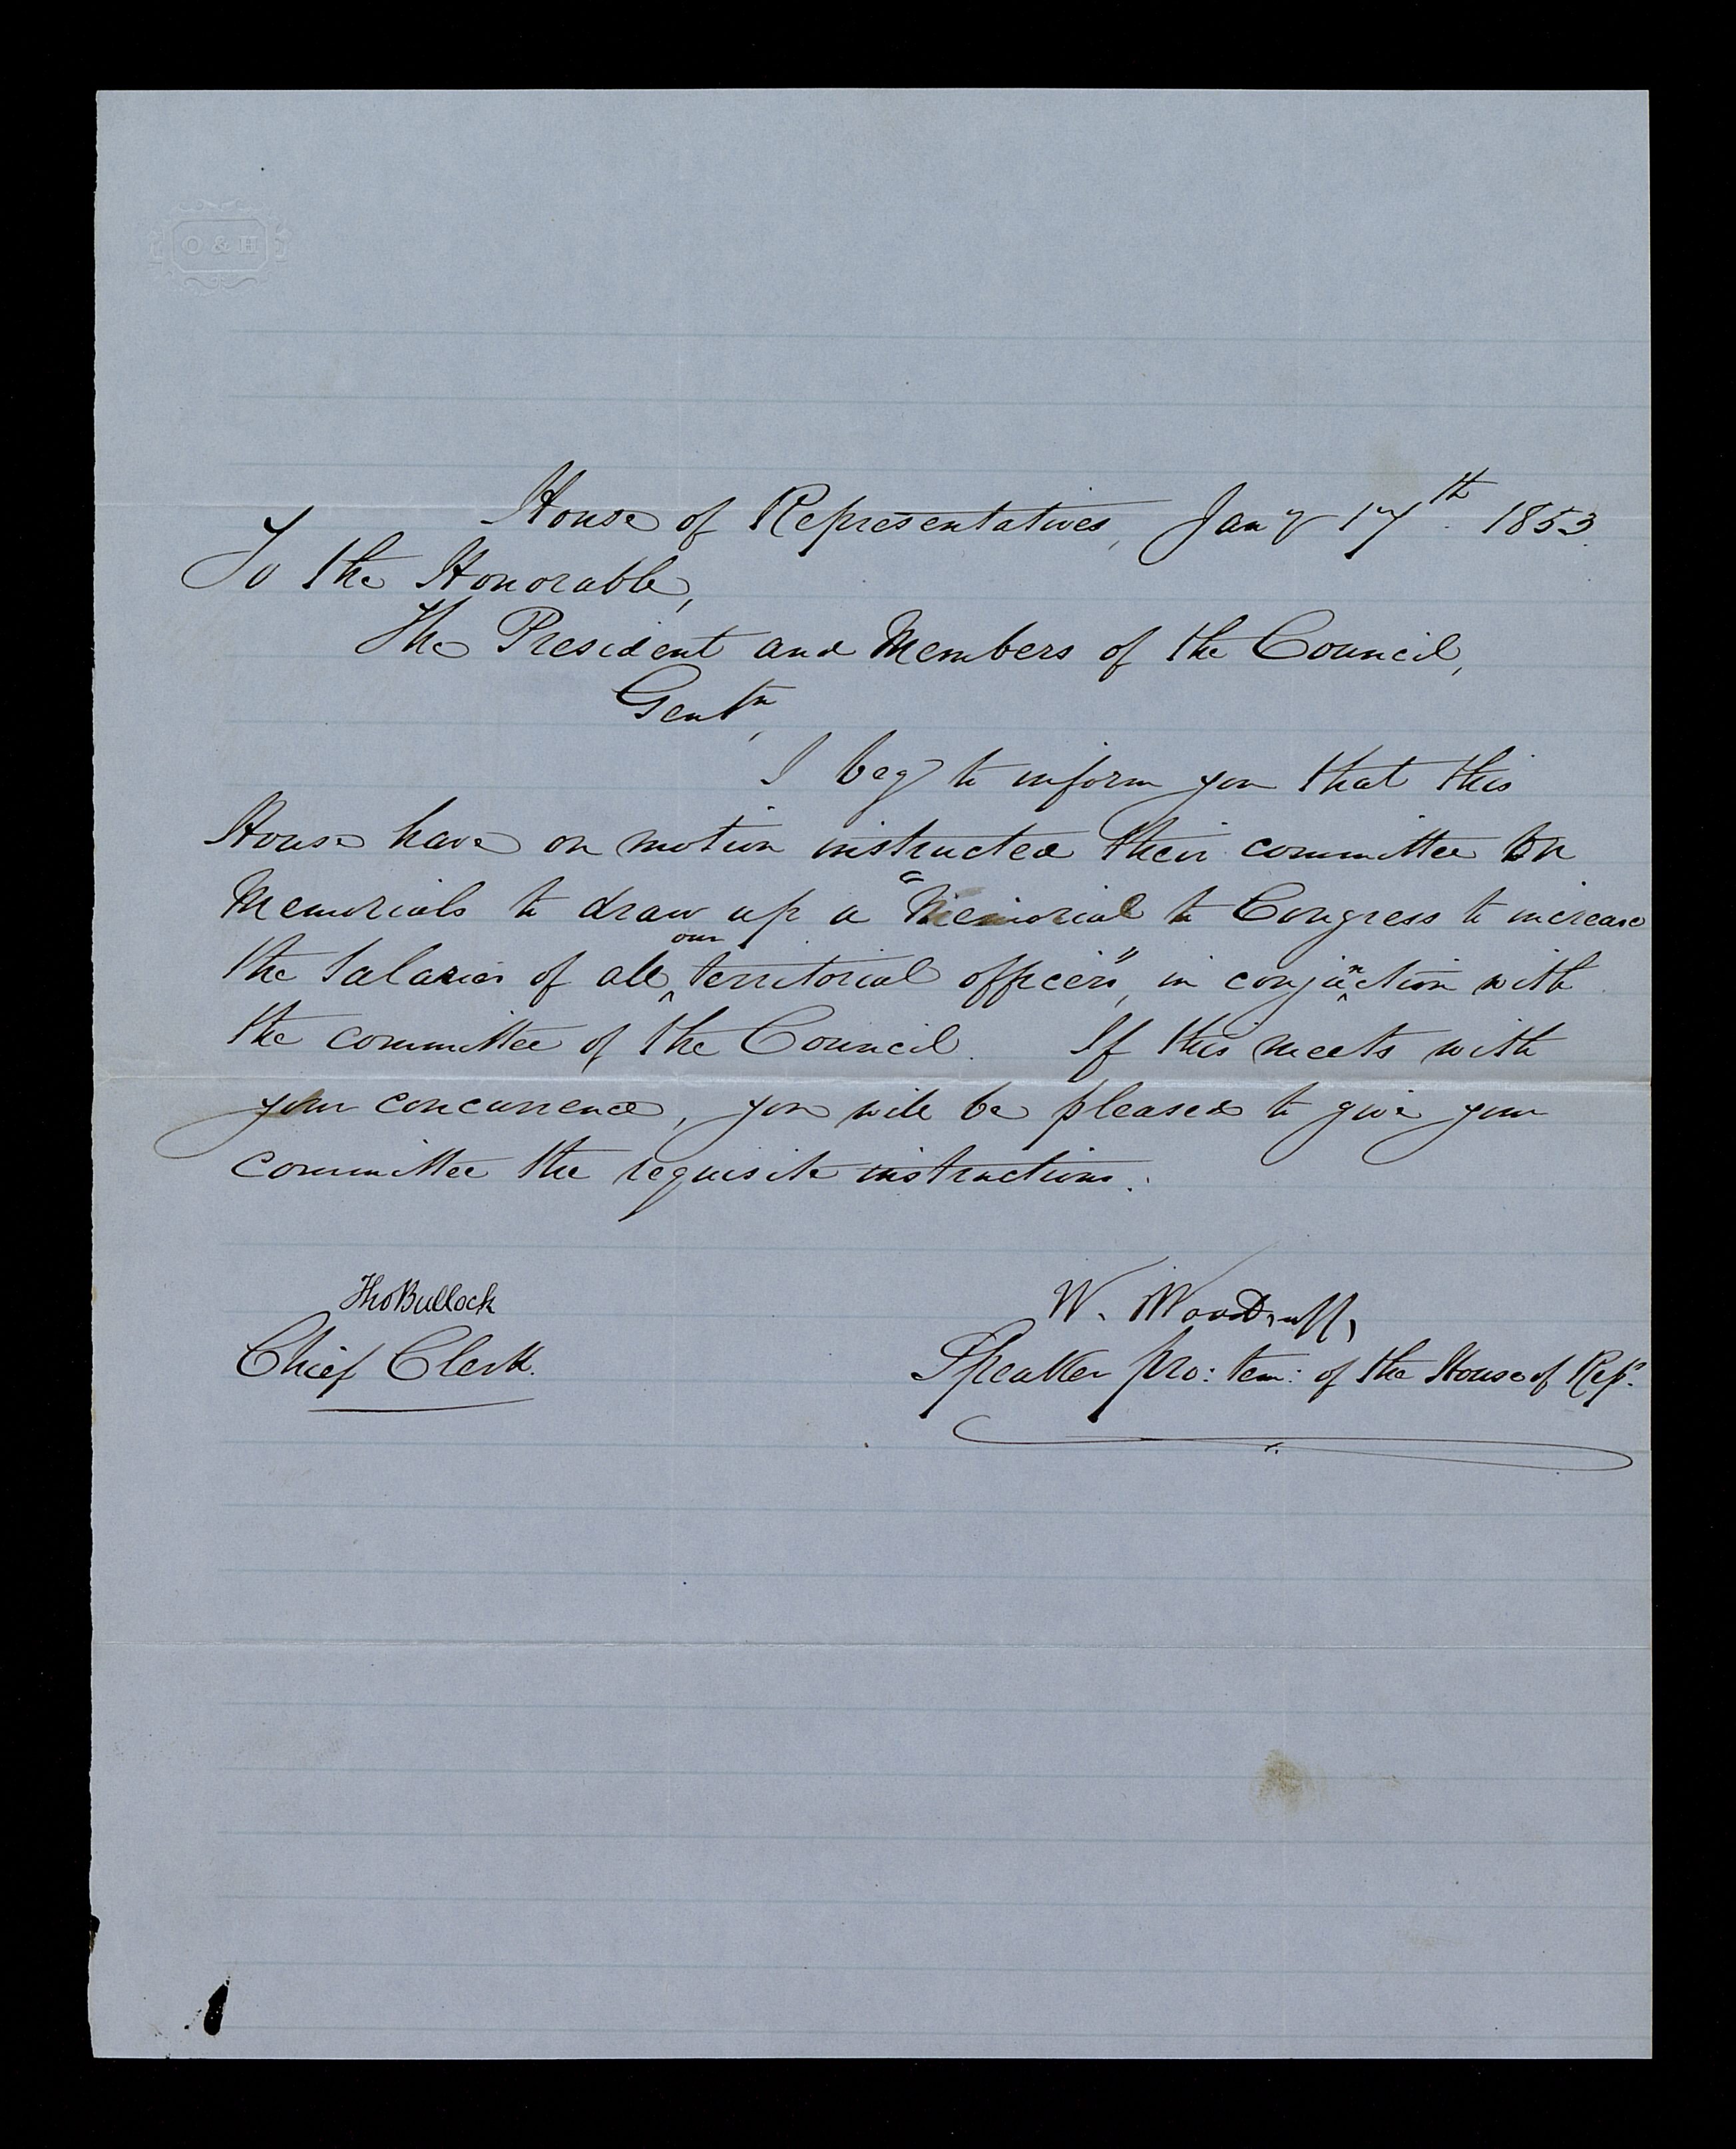 O & H
House of Representatives, Jany 17th 1853.
To the Honorable,
The President and Members of the Council,
Gentn,
I beg to inform you that this
House have on motion instructed their committee on
Memorials to draw up a "Memorial to Congress to increase
our
the Salaries of all ^ territorial officers", in conju^nction with
the committee of the Council. If this meets with
your concurrence, you will be pleased to give your
committee the requisite instructions.
Tho Bullock
Chief Clerk.
W. Woodruff,
Speaker pro: tem: of the House of Reps.